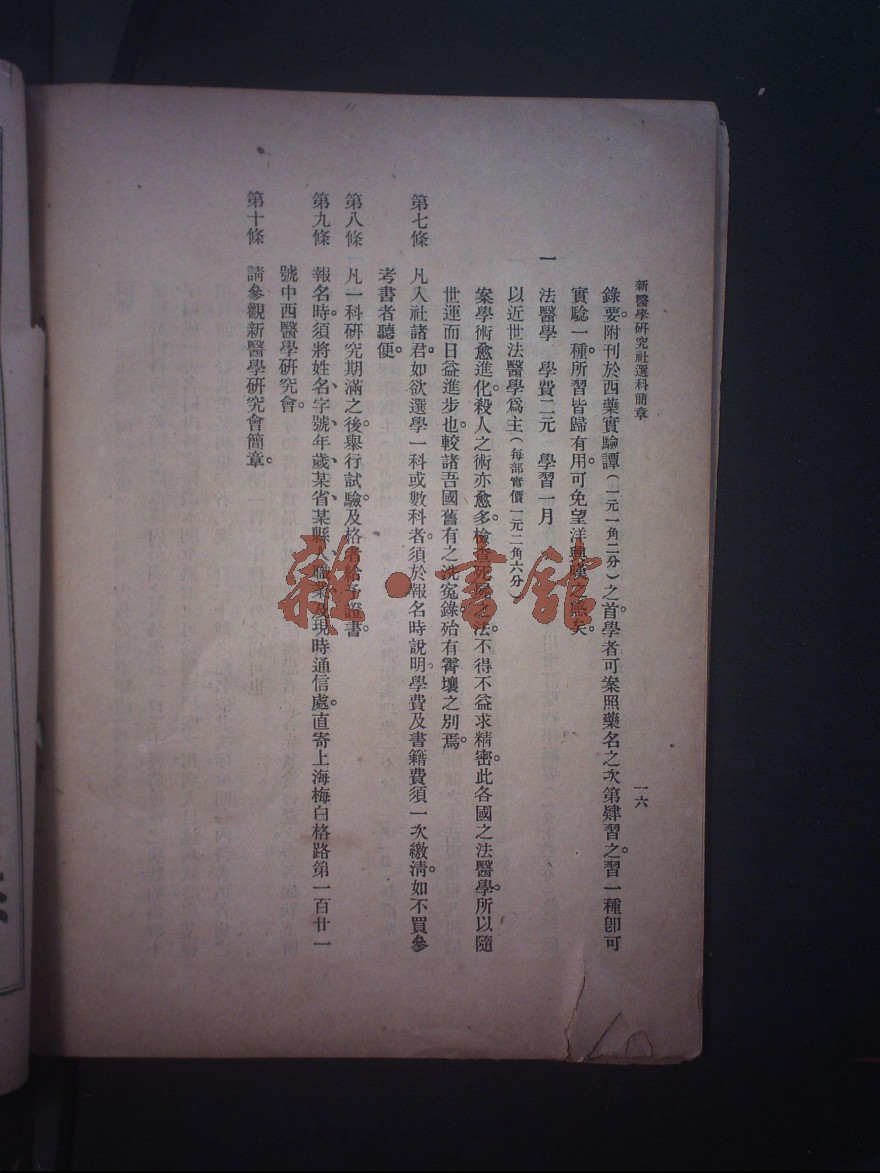 新醫學研究社選科簡章
一六
錄要。附刊於西藥實驗譚（一元一角二分）之首。學者可案照藥名之次第肄習之。習一種卽可
實驗一種。所習皆歸有用。可免望洋興嘆之慼矣。
一　法醫學　學費二元　學習一月
以近世法醫學爲主（每部實價一元二角六分）
案學術愈進化。殺人之術亦愈多。檢查死屍之法。不得不益求精密。此各國之法醫學。所以隨
世運而日益進步也。較諸吾國舊有之洗寃錄。殆有霄壤之別焉。
第七條　凡入社諸君。如欲選學一科或數科者。須於報名時說明。學費及書籍費須一次繳淸。如不買參
考書者聽便。
第八條　凡一科研究期滿之後。舉行試驗。及格者給予證書。
第九條　報名時。須將姓名、字號、年歲、某省、某縣人、職業、及現時通信處。直寄上海梅白格路第一百廿一
號中西醫學研究會。
第十條　請參觀新醫學研究會簡章。
雜·書館